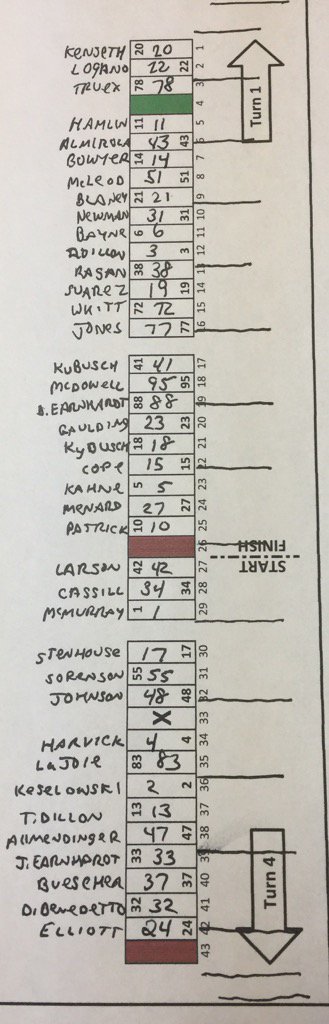 KENSETH 20 20 1
LOGANO 22 22 2
TRUEX 78 78 3
4
HAMLIN 11 11 5
ALMIROLA 43 43 6
BOWYER 14 14 7
McLEOD 51 51 8
BLANEY 21 21 9
NEWMAN 31 31 10
BAYNE 6 6 11
A.DILLON 3 3 12
RAGAN 38 38 13
SUAREZ 19 19 14
WHITT 72 72 15
JONES 77 77 16
Turn 1
KuBUSCH 41 41 17
MCDOWELL 95 95 18
D.EARNHARDT 88 88 19
GAULDING 23 23 20
KyBUSCH 18 18 21
COPE 15 15 22
KAHNE 5 5 23
MENARD 27 27 24
PATRICK 10 10 25
26
START
FINISH
LARSON 42 42 27
CASSILL 34 34 28
MCMURRAY 1 1 29
STENHOUSE 17 17 30
SORENSON 55 55 31
JOHNSON 48 48 32
X 33
HARVICK 4 4 34
LaJOIE 83 83 35
KESELOWSKI 2 2 36
T.DILLON 13 13 37
AllMENDINGER 47 47 38
J.EARNHARDT 33 33 39
BUESCHER 37 37 40
DiBENEDETTO 32 32 41
ELLIOTT 24 24 42
43
Turn 4